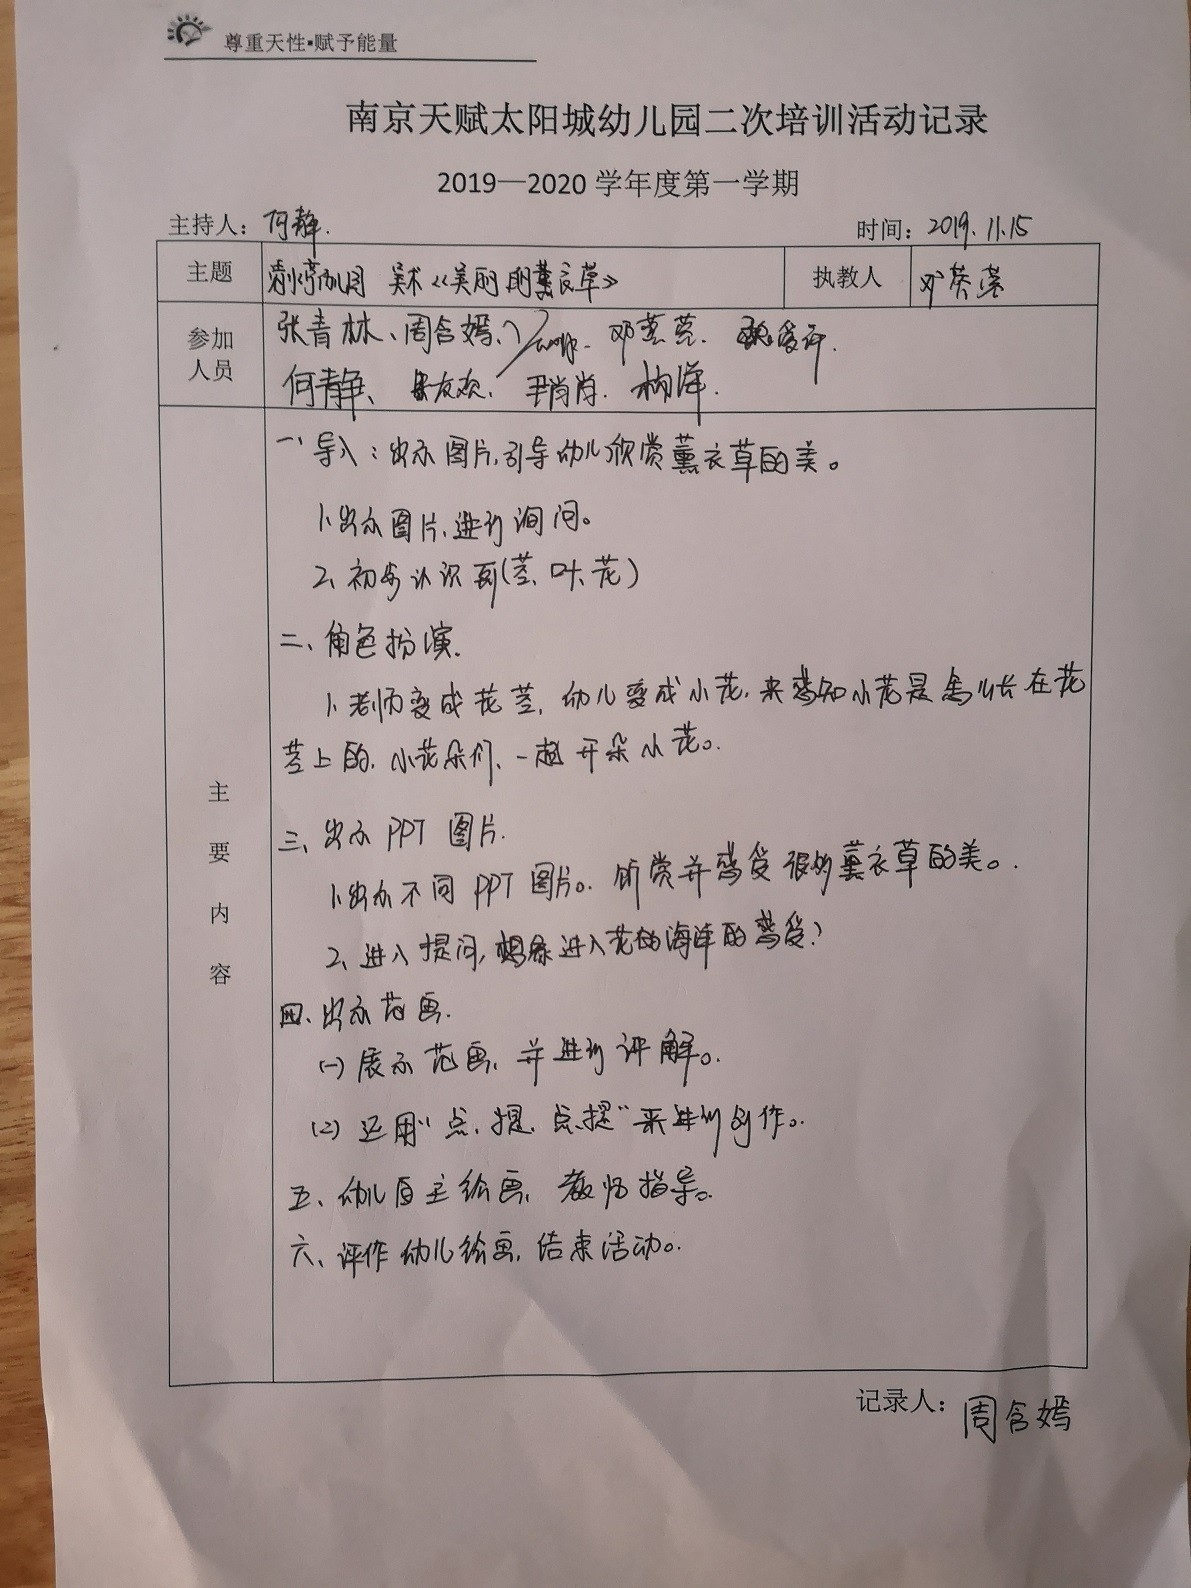 尊重天性•赋予能量
南京天赋太阳城幼儿园二次培训活动记录
2019—2020 学年度第一学期
主持人：何静. 时间：2019.11.15
主题 美术《美丽的薰衣草》 执教人
参加 张青林、周含嫣、
人员 何静、 尹肖肖. 杨洋.
一、导入：出示图片,引导幼儿欣赏薰衣草的美。
1、出示图片,进行询问。
2、初步认识到(茎、叶、花)
二、角色扮演.
1、老师变成花茎,幼儿变成小花,来感知小花是怎么长在花
茎上的,小花朵们,一起开朵小花。
三、出示PPT图片.
1、出示不同PPT图片。欣赏并感受很多薰衣草的美。.
2、进入提问,想象进入花的海洋的感受?
四、出示范画.
(一)展示范画,并进行评解。
(2)运用“点、提、点、提”来进行创作。
五、幼儿自主绘画,教师指导。
六、评作幼儿绘画,结束活动。
主
要
内
容
记录人：周含嫣